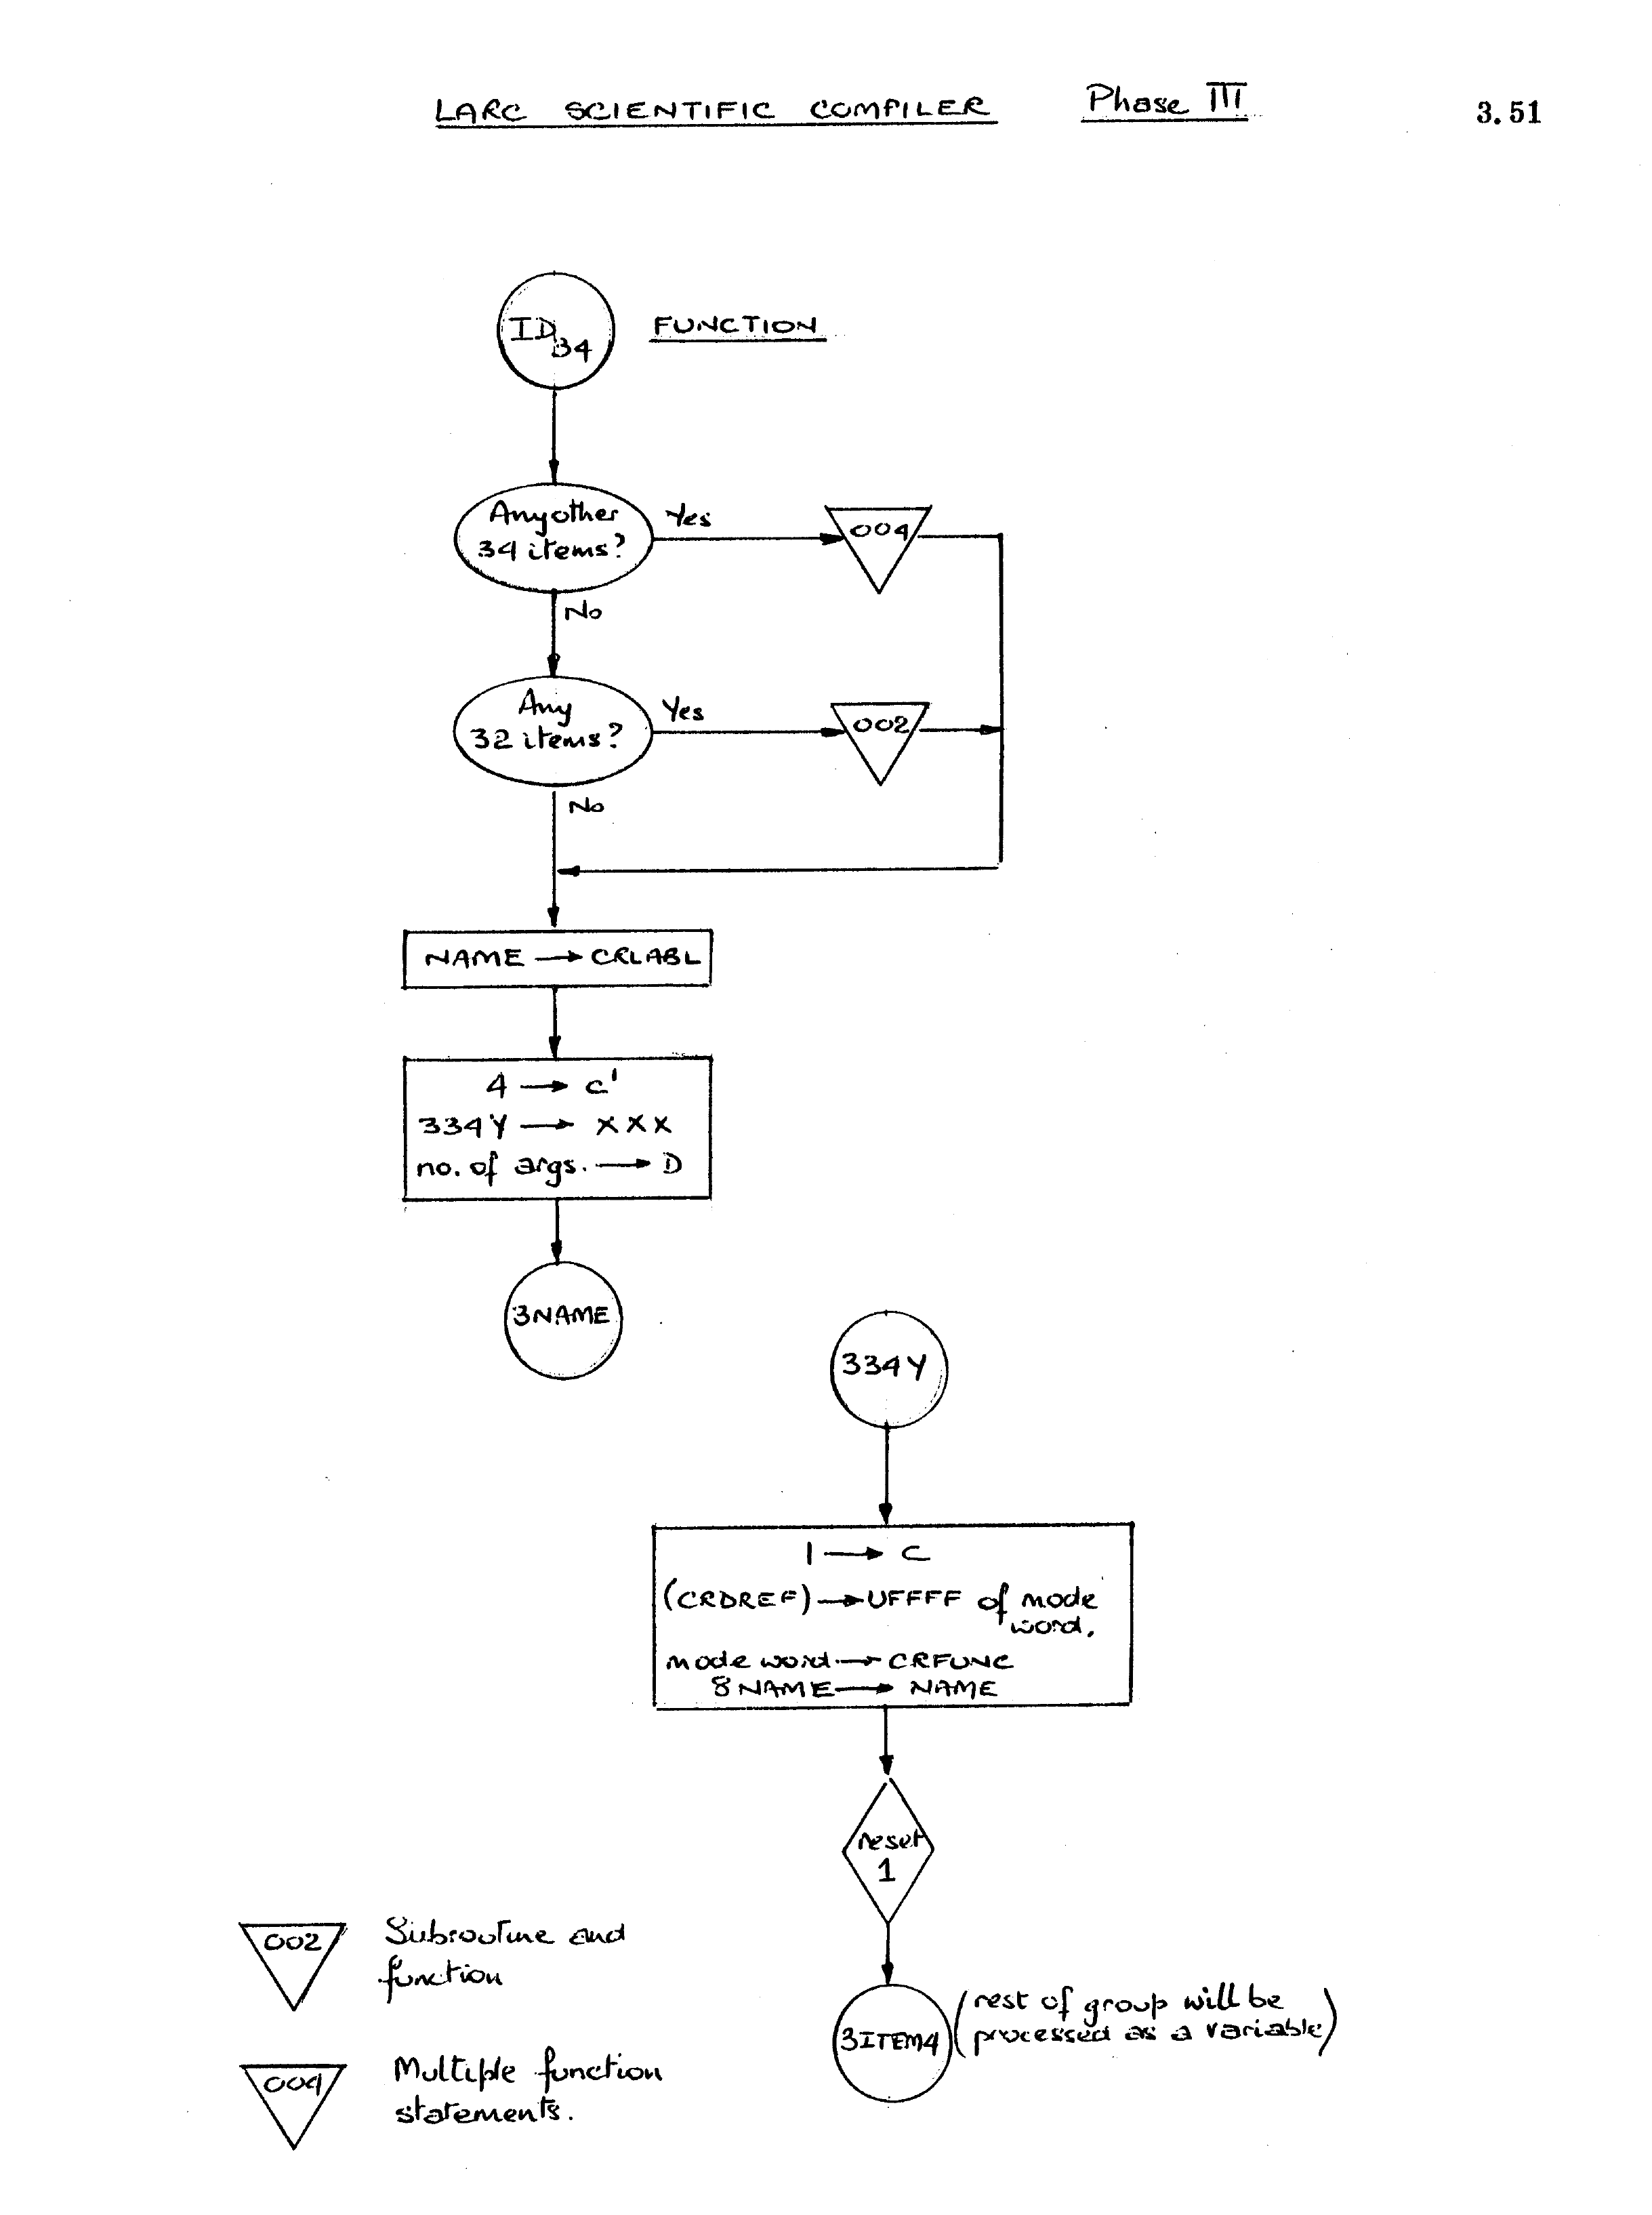 LARC SCIENTIFIC COMPILER Phase III 3.51
ID34 FUNCTION
Any other
34 items?
Yes
004
No
Any
32 items?
Yes
002
No
NAME → CRLABL
4 → C'
334Y → XXX
no. of args. → D
3NAME
334Y
1 → C
(CRDREF) → UFFFF of mode
word.
mode word → CRFUNC
8NAME → NAME
reset
1
3ITEM4
(rest of group will be
processed as a variable)
002
Subroutine and
function
004
Multiple function
statements.